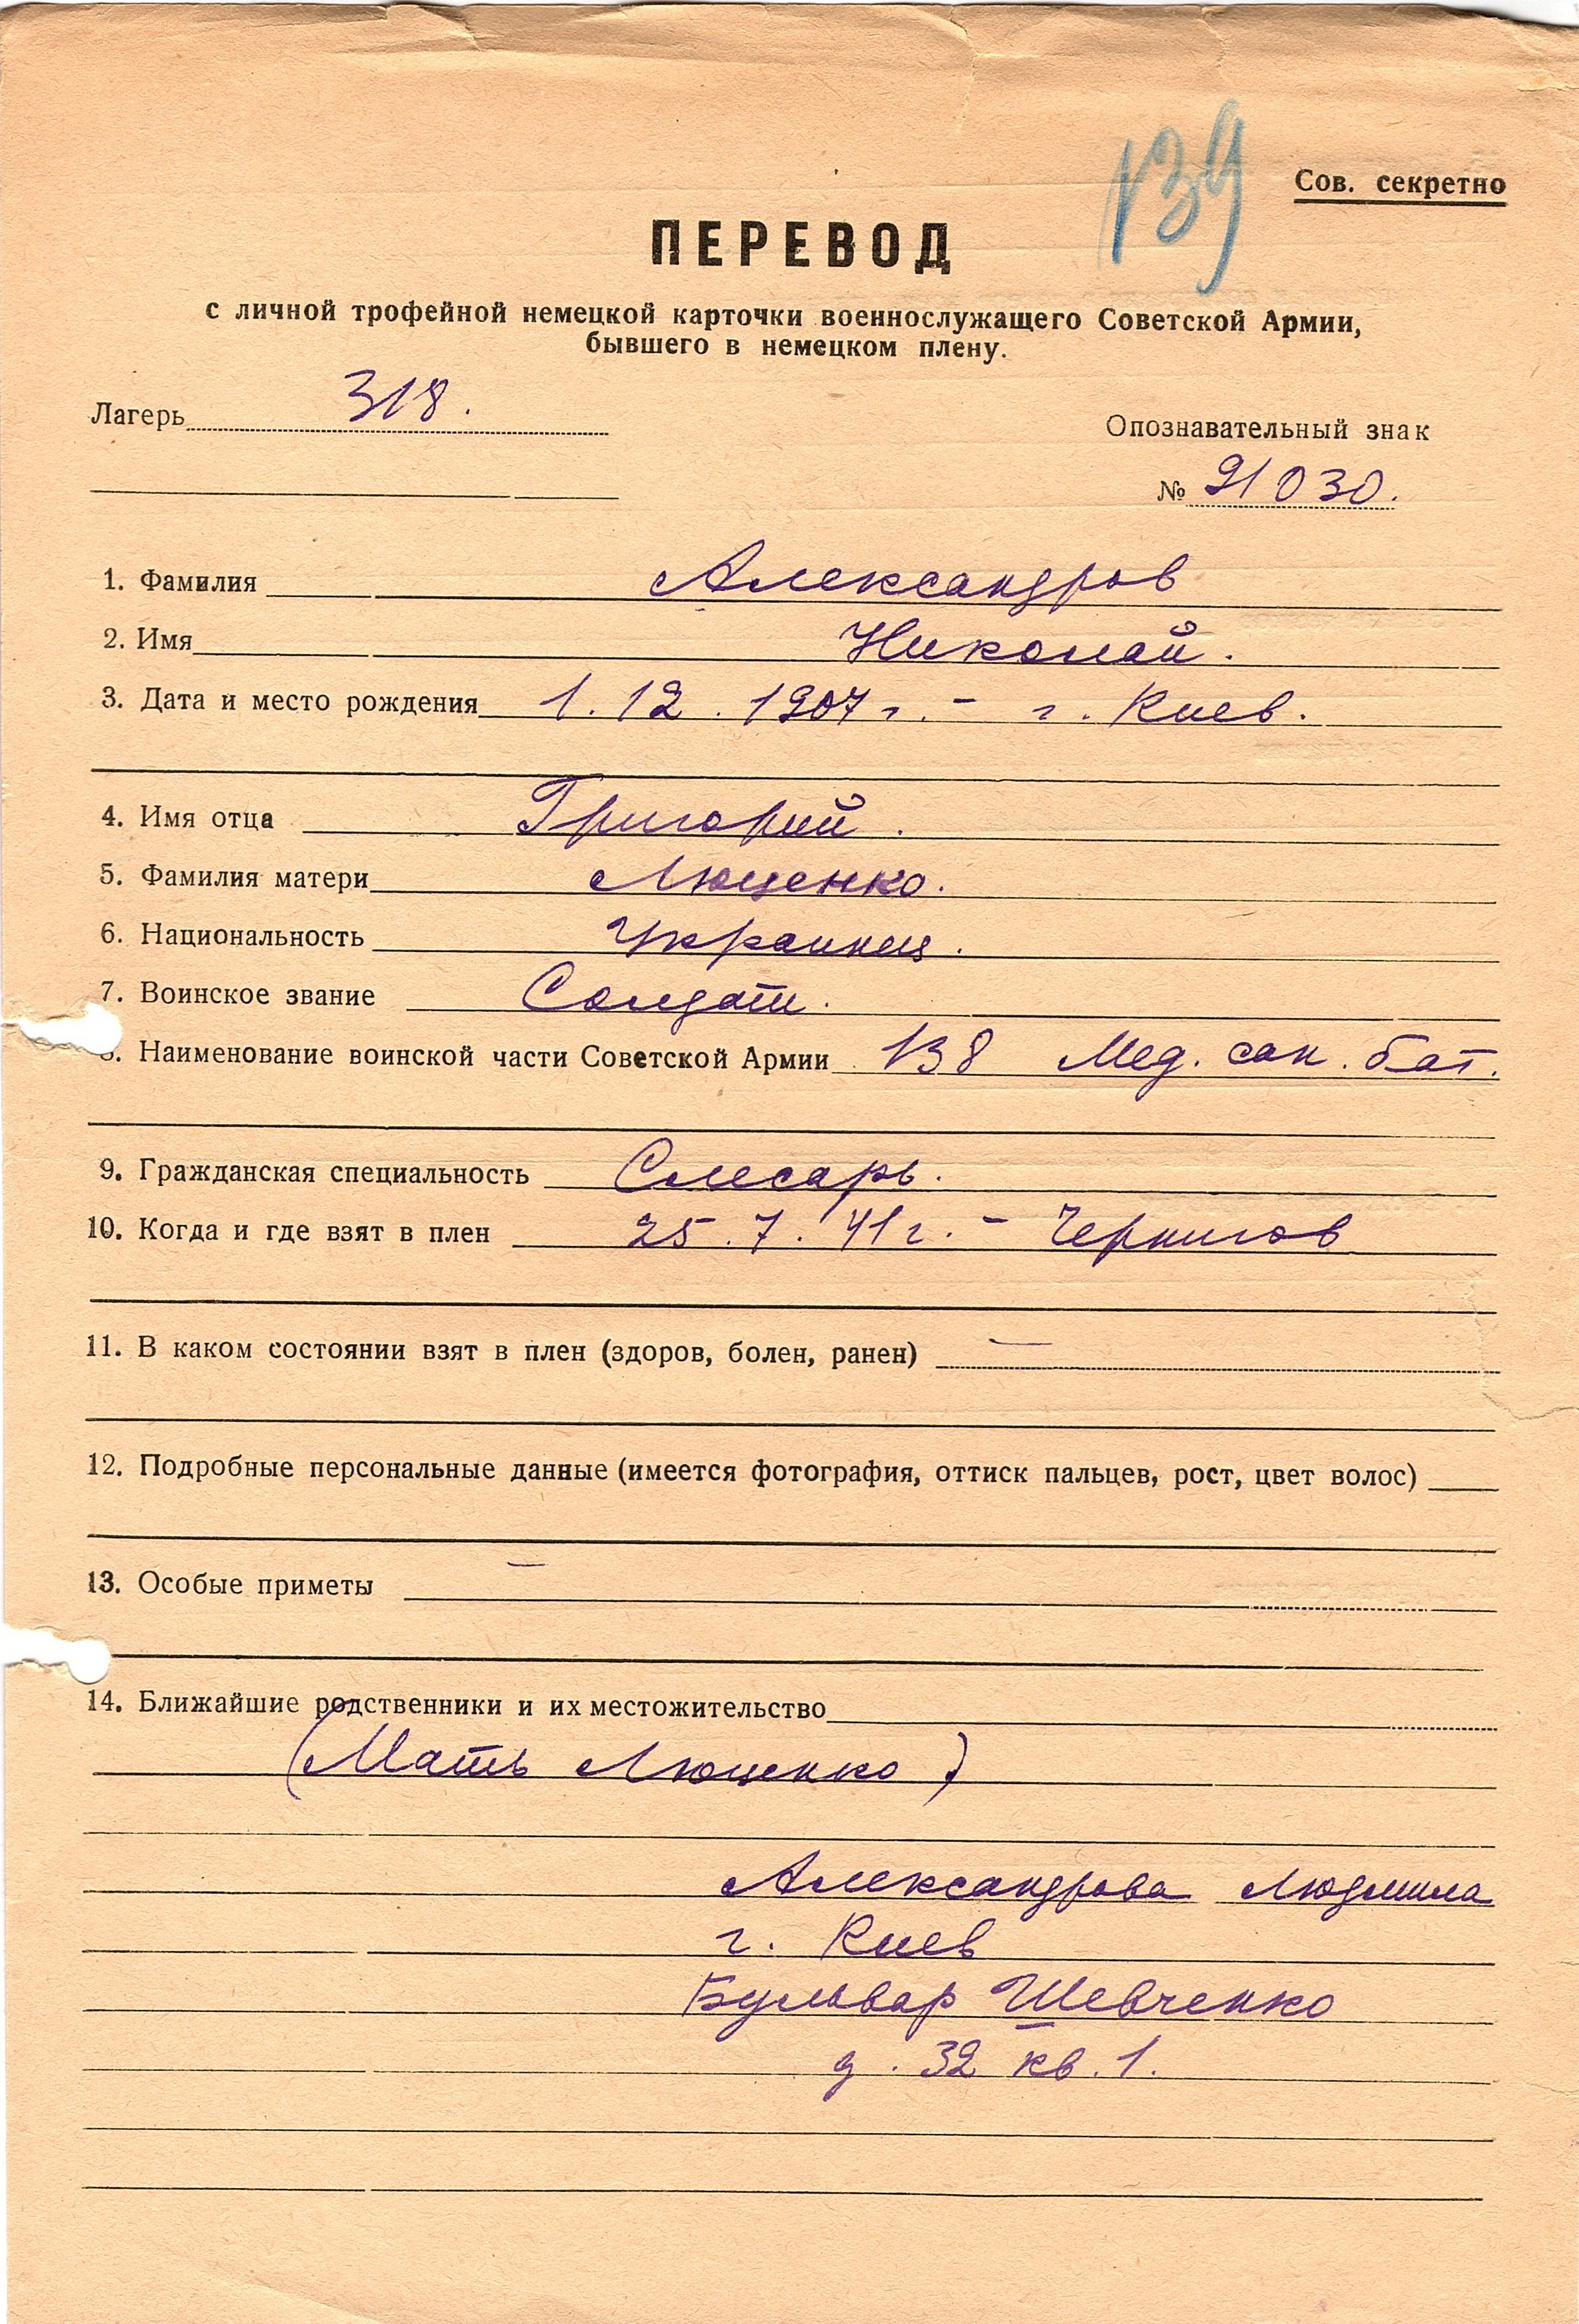 139
Сов. секретно
ПЕРЕВОД
с личной трофейной немецкой карточки военнослужащего Советской Армии,
бывшего в немецком плену.
Лагерь 318.
Опознавательный знак
№ 91030.
1. Фамилия Александров
2. Имя Николай.
3. Дата и место рождения 1.12.1907 г. - г. Киев.
4. Имя отца Григорий.
5. Фамилия матери Люценко.
6. Национальность Украинец.
7. Воинское звание Солдат.
8. Наименование воинской части Советской Армии 138 Мед. сан. бат.
9. Гражданская специальность Слесарь.
10. Когда и где взят в плен 25.7.41 г. - Чернигов
11. В каком состоянии взят в плен (здоров, болен, ранен) —
12. Подробные персональные данные (имеется фотография, оттиск пальцев, рост, цвет волос)
13. Особые приметы —
14. Ближайшие родственники и их местожительство
(Мать Люценко)
Александрова Людмила
г. Киев
Бульвар Шевченко
д. 32 кв. 1.